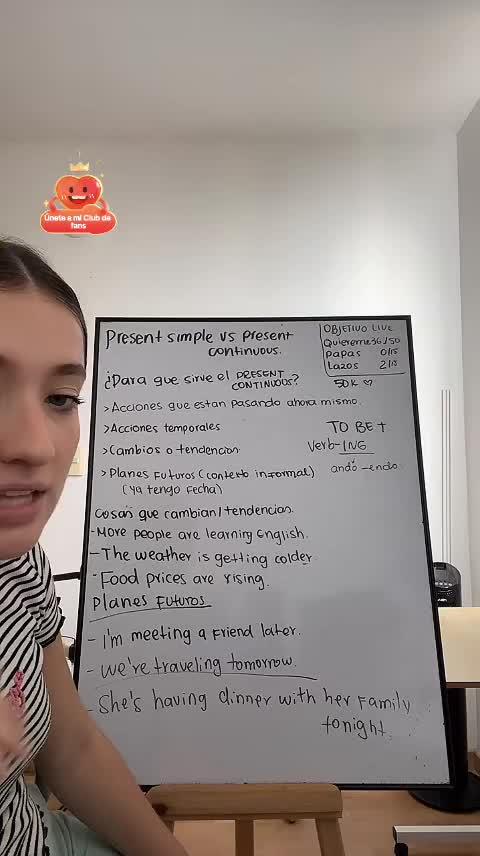 Únete a mi Club de
fans
Present simple vs Present
continuous.
OBJETIVO LIVE
Quiereme 36/50
Papas 0/15
Lazos 2/13
50K
¿Para que sirve el PRESENT
CONTINUOUS?
>Acciones que estan pasando ahora mismo.
>Acciones temporales
>Cambios o tendencion
>Planes Futuros (contexto informal)
(ya tengo fecha)
TO BE +
Verb-ING
ando -endo
Cosas que cambian/tendencias.
-More people are learning English.
-The weather is getting colder.
-Food prices are rising.
Planes Futuros
- I'm meeting a friend later.
- We're traveling tomorrow.
- She's having dinner with her Family
tonight.